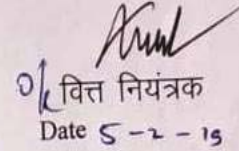 वित्त नियंत्रक
Date 5-2-19